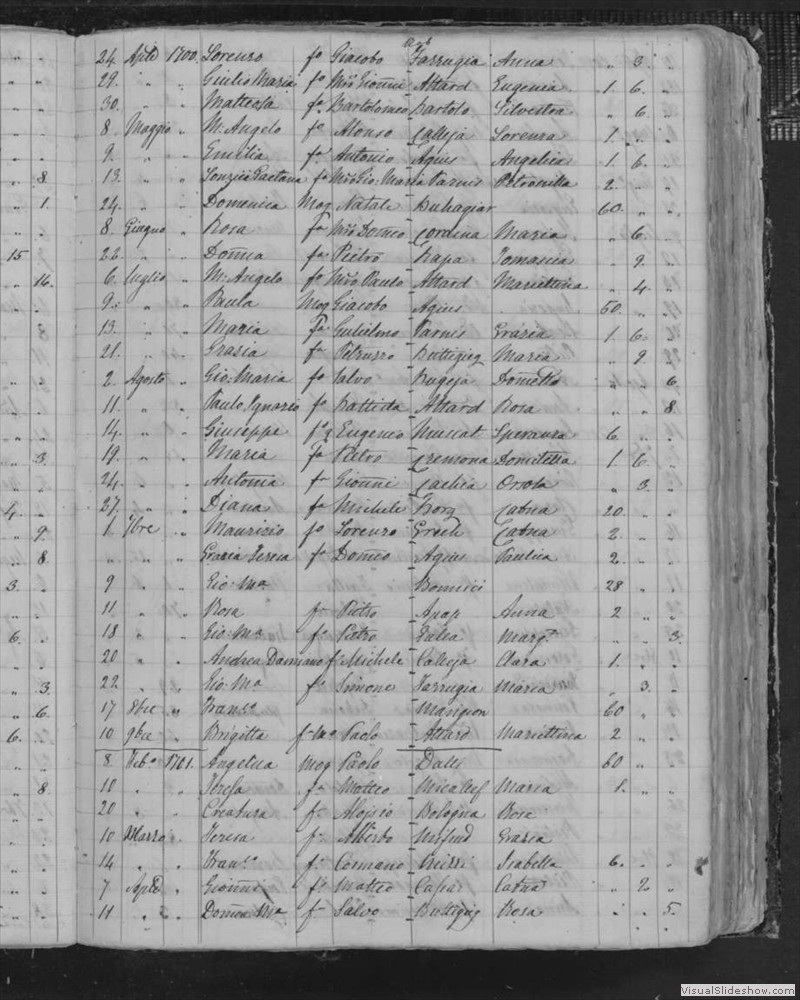 24. Aple 1700. Lorenzo fo Giacobo Farrugia Anna „ 3. „
29. „ „ Giulio Maria fo Mro Gionni Attard Eugenia 1. 6. „
30. „ „ Matteola fa Bartolomeo Bartolo Silvestra „ 6 „
8. Maggio „ M. Angelo fo Alonso Calleja Lorenza 1. „ „
9. „ „ Emilia fa Antonio Agius Angelica 1. 6. „
8. 13. „ „ Gaetana fa Mro Gio: Maria Farnis Petronilla 2. „ „
1. 24. „ „ Domenica Mog Natale Buhagiar 60. „ „
8. Giugno „ Rosa fa Mro Domco Cordina Maria „ 6. „
15 22. „ „ Domca fa Pietro Rapa Tomasia „ 9. „
16. 6. Luglio „ M: Angelo fo Mro Paulo Attard Mariettina „ 4. „
9. „ „ Paula Mog Giacobo Agius 50. „ „
13. „ „ Maria fa Gulielmo Farnis Grazia 1. 6. „
21. „ „ Grasia fa Petruzzo Buttigieg Maria „ 9 „
2. Agosto „ Gio: Maria fo Salvo Bugeja „ „ 6.
11. „ „ Paulo Ignazio fo Battista Attard Rosa „ „ 8.
14. „ „ Giuseppe fo Eugenio Muscat Speranza 6. „ „
3. 19. „ „ Maria fa Pietro Cremona Domitilla 1. 6. „
24. „ „ Antonia fa Gionni Orsola „ 3. „
4. 27. „ „ Diana fa Michele Borg Catna 20. „ „
9. 1. 7bre „ Maurizio fo Lorenzo Grech Catna 2. „ „
8. „ „ „ Grazia Teresa fa Domco Agius Paulica 2. „ „
3. 9 „ „ Gio: Ma Bonnici 28 „ „
11 „ „ Rosa fa Pietro Apap Anna 2 „ „
6. 18 „ „ Gio: Ma fo Pietro Marga „ „ 3.
20 „ „ Andrea Damiano fo Michele Calleja Clara 1. „ „
3. 22 „ „ Gio: Ma fo Simone Farrugia Maria „ 3. „
6. 17 8bre „ Franca Mangion 60 „ „
6. 10 9bre „ Brigitta f. Mo Paolo Attard Mariettina 2 „ „
8. Feb. 1701. Angelica Mog Paolo Dalli 60 „ „
8. 10 „ „ Teresa fa Matteo Micallef Maria 1. „ „
20 „ „ Creatura f. Aloisio Bologna Rosa
10 Marzo „ Teresa f. Alberto Mifsud Grazia
14 „ „ Franco f. Cosmano Mizzi Isabella 6. „ „
7 Aple „ Gionni fo Matteo Caspar Catna „ 2. „
11 „ „ Domca Ma f. Salvo Buttigieg Rosa „ „ 5.
VisualSlideshow.com